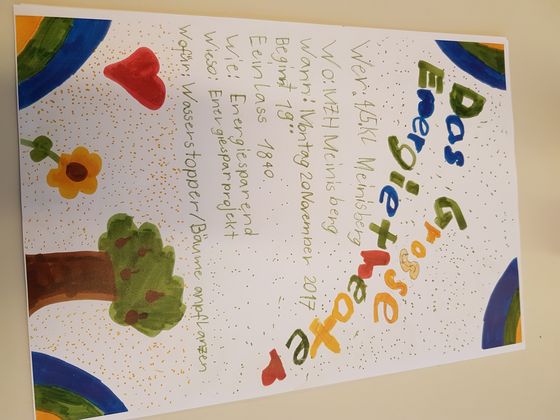 Das Grosse
Energietheate
Wer: 4/5.KL Meinisberg
Wo: MZH Meinisberg
Wann: Montag 20 November 2017
Beginnt 19⁰⁰
Eeinlass 1840
Wie: Energiesparend
Wieso: Energiesparprojekt
Wofür: Wasserstopper/Bäume anpflanzen